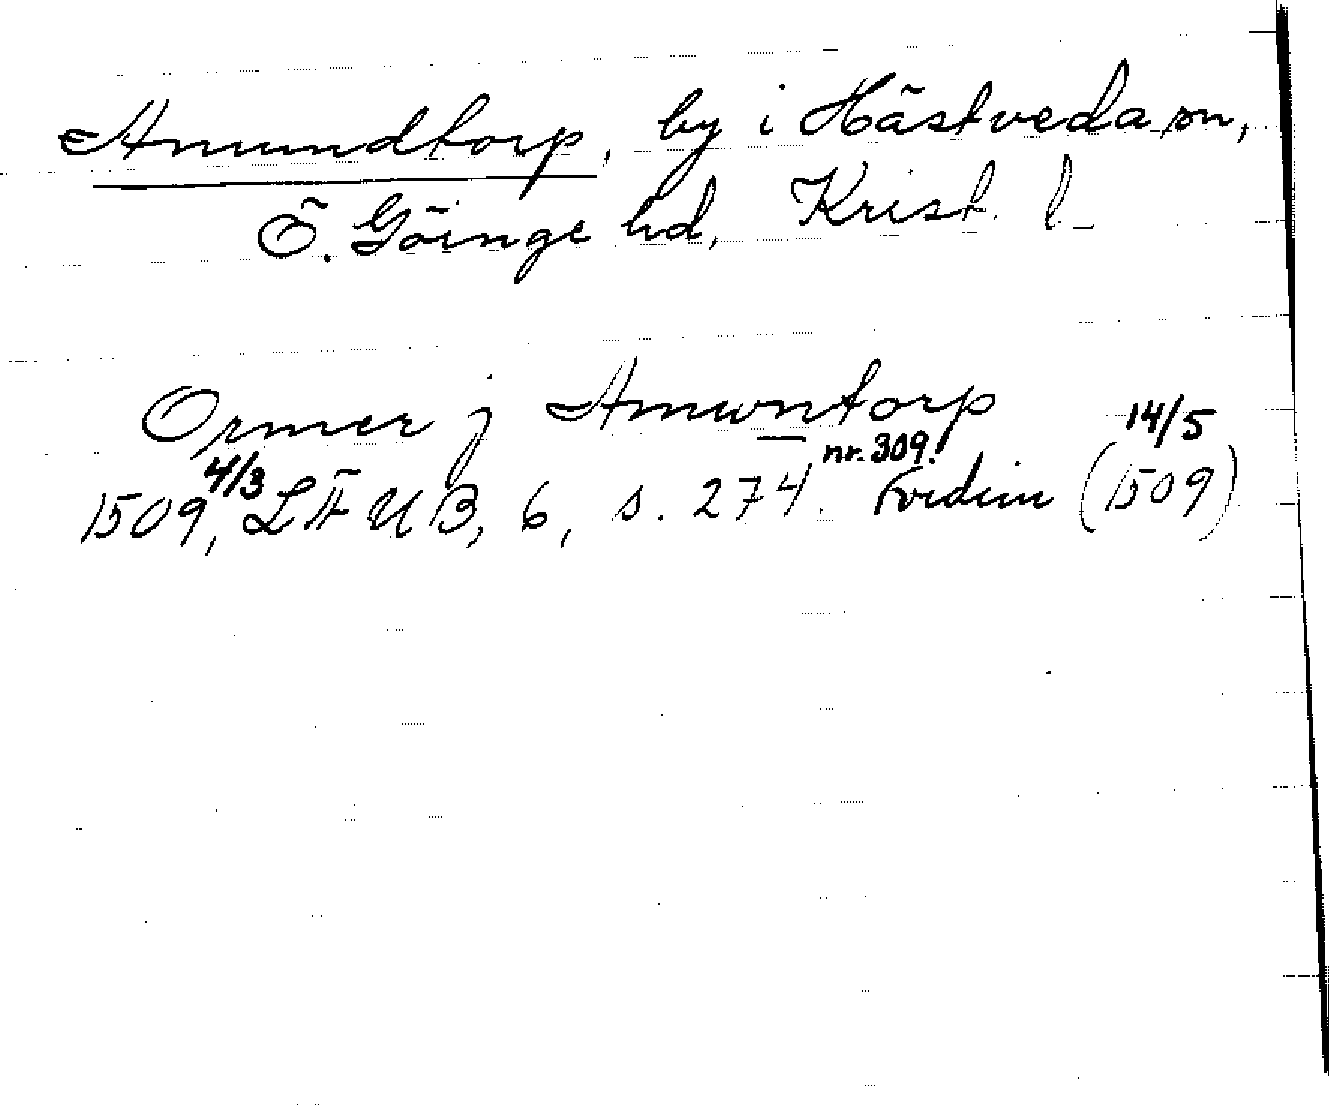 Amundtorp, by i Hästveda sn,
Ö. Göinge hd, Krist. l.
Ormer j Amwntorp
1509 4/3, LÄUB, 6, s. 274. nr. 309. Vidim (1509) 14/5